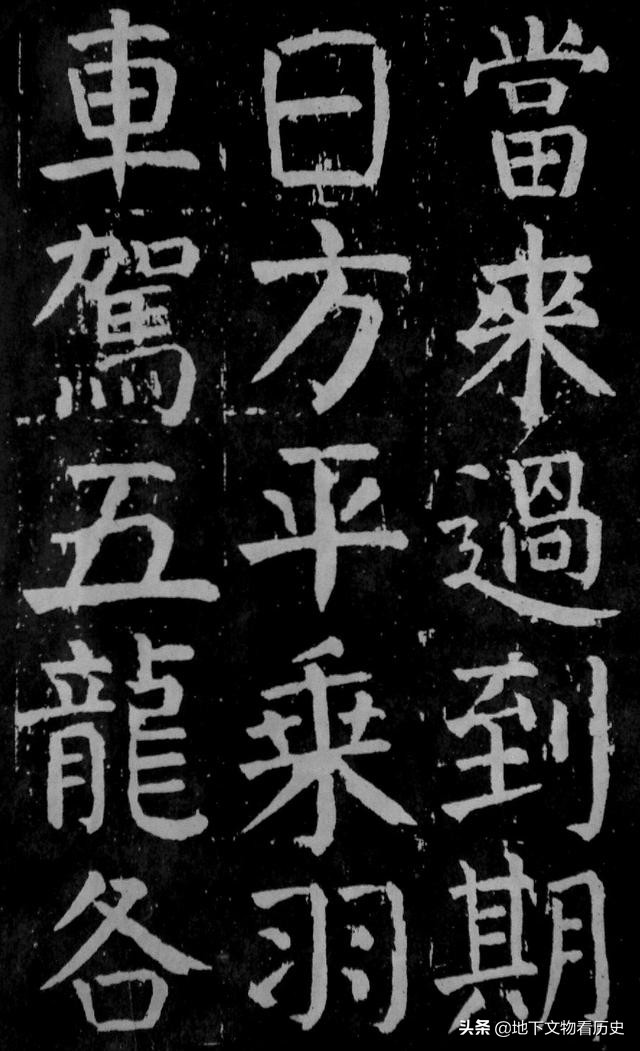 當來過到期
日方平乗羽
車駕五龍各
头条 @地下文物看历史